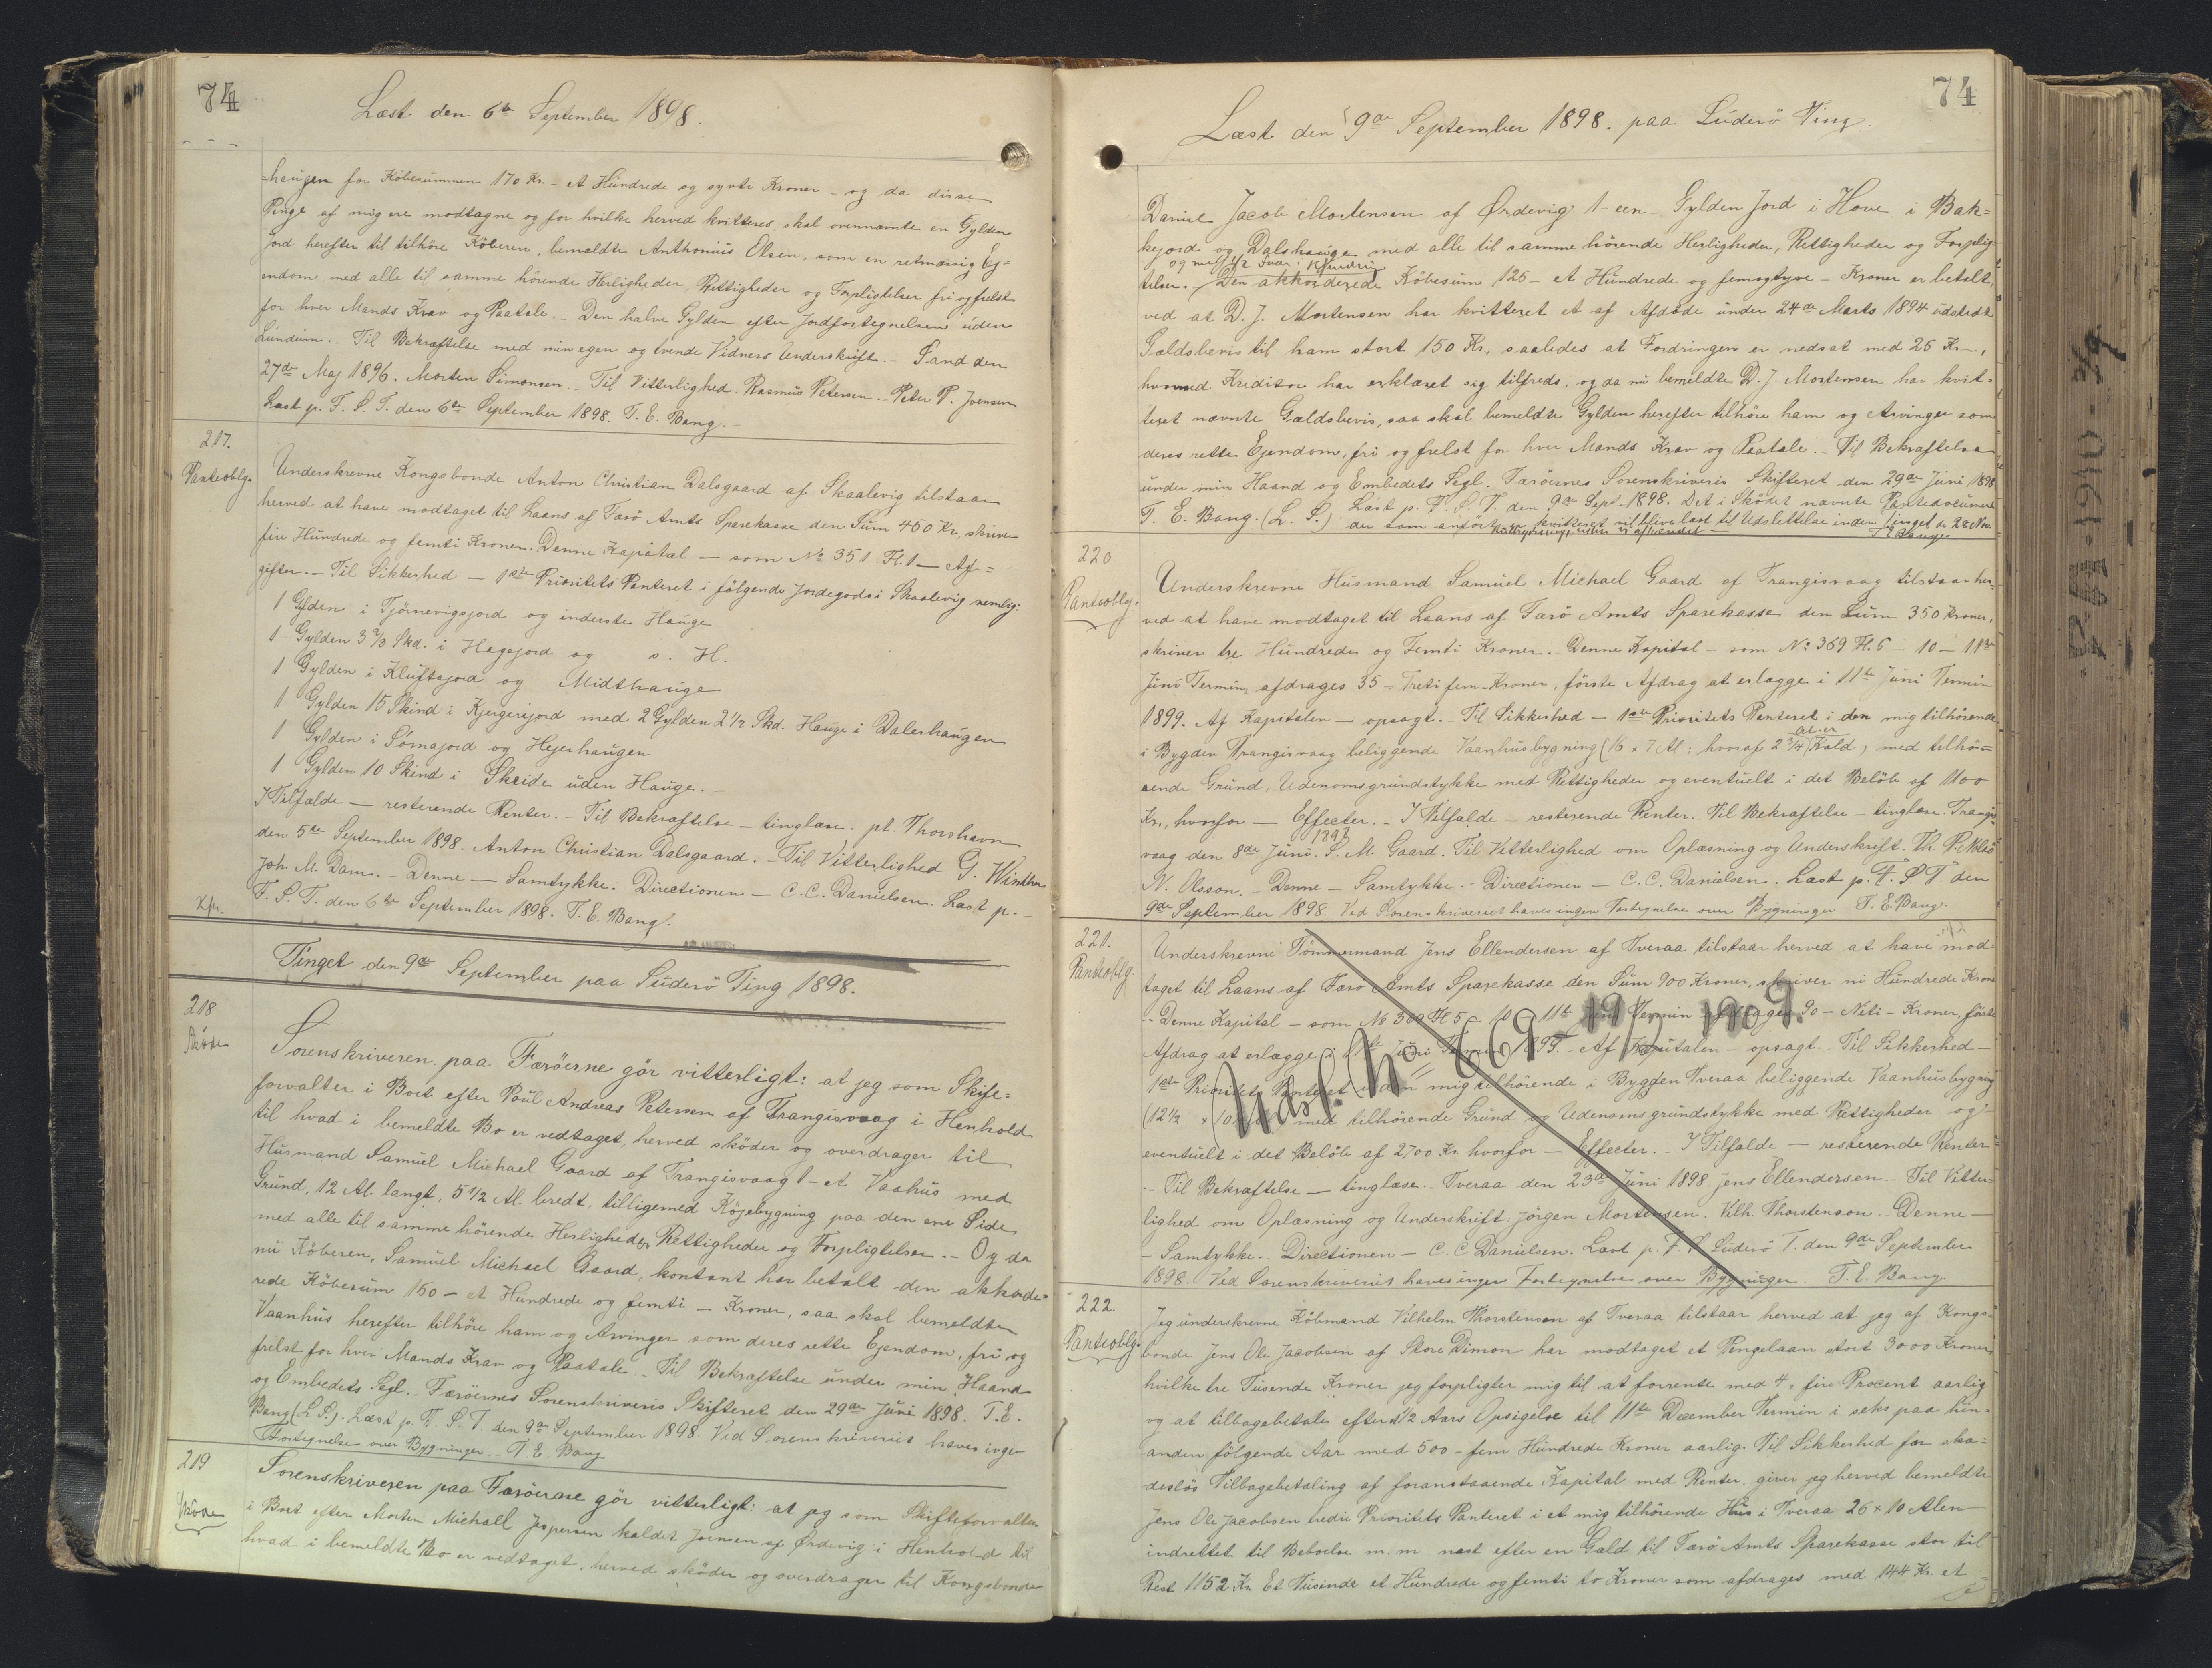 74
Læst den 6te September 1898.
haugen for Köbesummen 170 Kr. - et Hundrede og syvti Kroner - og da disse
Penge af mig ere modtagne og for hvilke herved kvitteres, skal ovennævnte en Gylden
Jord herefter til tilhöre Köberen, bemeldte Anthonius Olsen, som en retmæssig Ej=
endom med alle til samme hörende Herligheder, Rettigheder og Forpligtelser fri og frelst
for hver Mands Krav og Paatale. - Den halve Gylden efter Jordfortegnelsen uden
Lunduim. - Til Bekræftelse med min egen og tvende Vidners Underskrift. - Sand den
27de Maj 1896. Morten Simonsen. Til Vitterlighed Rasmus Petersen. - Peter P. Joensen
Læst p. F. S. T. den 6te September 1898. T. E. Bang.
217.
Panteoblg.
Underskrevne Kongsbonde Anton Christian Dalsgaard af Skaalevig tilstaar
herved at have modtaget til Laans af Færö Amts Sparekasse den Sum 450 Kr, skriver
fire Hundrede og femti Kroner. Denne Kapital - som No 351 Fl. 1 - Af=
gifter. - Til Sikkerhed - 1ste Prioritets Panteret i fölgende Jordegods i Skaalevig nemlig:
1 Gylden i Tjörnevigsjord og inderste Hauge
1 Gylden 3 2/3 Skd. i Hagajord og s. H.
1 Gylden i Kluftajord og Midthauge
1 Gylden 15 Skind i Kjergerijord med 2 Gylden 2 1/2 Skd. Hauge i Dalerhaugen
1 Gylden i Sörnajord og Hejerhaugen
1 Gylden 10 Skind i Skeide uden Hauge. -
I Tilfælde - resterende Renter. - Til Bekræftelse - tinglæse. pt. Thorshavn
den 5te September 1898. Anton Christian Dalsgaard. - Til Vitterlighed G. Winther
Joh. M. Dam. - Denne - Samtykke. Directionen - C. C. Danielsen. Læst p. -
F. S. T. den 6te September 1898. T. E. Bang.
Tinget den 9de September paa Suderö Ting 1898.
218
Sköde
Sorenskriveren paa Færöerne gör vitterligt: at jeg som Skife=
forvalter i Boet efter Poul Andreas Petersen af Trangisvaag i Henhold
til hvad i bemeldte Bo er vedtaget, herved sköder og overdrager til
Husmand Samuel Michael Gaard af Trangisvaag 1 - et Vaahus med
Grund, 12 Al. langt, 5 1/2 Al. bredt, tilligemed Röjebygning paa den ene Side
med alle til samme hörende Herligheder, Rettigheder og Forpligtelser. - Og da
nu Köberen, Samuel Michael Gaard, kontant har betalt den akkorde=
rede Köbesum 150 - et Hundrede og femti - Kroner, saa skal bemeldte
Vaanhus herefter tilhöre ham og Arvinger som deres rette Ejendom, fri og
frelst for hver Mands Krav og Paatale. - Til Bekræftelse under min Haand
og Embedets Segl. - Færöernes Sorenskriveris Skifteret den 29de Juni 1898. T. E.
Bang (L. S.). Læst p. F. S. T. den 9de September 1898. Ved Sorenskriveriet haves ingen
Fortegnelse over Bygninger. - T. E. Bang
219
Sköde
Sorenskriveren paa Færöerne gör vitterligt: at jeg som Skifteforvalter
i Boet efter Morten Michall Jespersen kaldet Joensen af Ørdevig i Henhold til
hvad i bemeldte Bo er vedtaget, herved sköder og overdrager til Kongsbonde
74
Læst den 9de September 1898. paa Suderö Ting.
Daniel Jacob Mortensen af Ørdevig 1 - een - Gylden Jord i Hove i Bak=
kejord og Dalshauge med alle til samme hörende Herligheder, Rettigheder og Forplig-
telser. Den akkorderede Köbesum 125 - et Hundrede og femogtyve - Kroner er betalt,
ved at D. J. Mortensen har kvitteret et af Afdöde under 24de Marts 1894 udstedt
Gældsbevis til ham stort 150 Kr., saaledes at Fordringen er nedsat med 25 Kr.,
hvormed Kreditor har erklæret sig tilfreds, og da nu bemeldte D. J. Mortensen har kvit-
teret nævnte Gældsbevis, saa skal bemeldte Gylden herefter tilhöre ham og Arvinger som
deres rette Ejendom, fri og frelst for hver Mands Krav og Paatale. - Til Bekræftelse
under min Haand og Embedets Segl. Færöernes Sorenskriveris Skifteret den 29de Juni 1898
T. E. Bang. (L. S.) Læst p. F. S. T. den 9de Sept. 1898. Det i Sködet nævnte Pantedocument
der som anfört er kvitteret vil blive læst til Udslettelse inden Tinget
220
Panteoblg.
Underskrevne Husmand Samuel Michael Gaard af Trangisvaag tilstaar her-
ved at have modtaget til Laans af Færö Amts Sparekasse den Sum 350 Kroner,
skriver tre Hundrede og Femti Kroner. - Denne Kapital - som No 369 Fl. 5 - 10 - 11te
Juni Termin afdrages 35 - Treti fem - Kroner, förste Afdrag at erlægge i 11te Juni Termin
1899. Af Kapitalen - opsagt. - Til Sikkerhed - 1ste Prioritets Panteret i den mig tilhörende
i Bygden Trangisvaag beliggende Vaanhusbygning (16 x 7 Al: hvoraf 2 3/4 Al. er Kold), med tilhö=
rende Grund, Udenomsgrundstykke med Rettigheder og eventuelt i det Belöb af 1100
Kr., hvorfor - Effecter. - I Tilfælde - resterende Renter. Til Bekræftelse - tinglæse. Trangis-
vaag den 8de Juni 1898. S. M. Gaard. Til Vitterlighed om Oplæsning og Underskrift. Th. P. Nolsö
N. Olsson. - Denne - Samtykke. - Directionen - C. C. Danielsen. Læst p. F. S. T. den
9de September 1898. Ved Sorenskriveriet haves ingen Fortegnelse over Bygninger T. E. Bang.
221.
Panteoblg.
Underskrevne Tömmermand Jens Ellendersen af Tveraa tilstaar herved at have mod-
taget til Laans af Færö Amts Sparekasse den Sum 900 Kroner, skriver ni Hundrede Kroner
- Denne Kapital - som No 369 Fl 5 - 10 - 11te Juni Termin afdrages 90 - Niti - Kroner, förste
Afdrag at erlægge i 11te Juni Termin 1899. - Af Kapitalen - opsagt. Til Sikkerhed -
1ste Prioritets Panteret i den mig tilhörende i Bygden Tveraa beliggende Vaanhusbygning
(12 1/2 x 10 med tilhörende Grund og Udenomsgrundstykke med Rettigheder og
eventuelt i det Belöb af 2700 Kr. hvorfor - Effecter. - I Tilfælde - resterende Renter
- Til Bekræftelse - tinglæse. - Tveraa den 23de Juni 1898 Jens Ellendersen. - Til Vitter-
lighed om Oplæsning og Underskrift. Jörgen Mortensen. Vilh. Thorstensen. Denne -
- Samtykke. - Directionen - C. C. Danielsen. Læst p. F. S. Suderö T. den 9de September
1898. Ved Sorenskriveriet haves ingen Fortegnelse over Bygninger. T. E. Bang.
Udsl. No 669 - 19/7 1909.
222.
Panteoblg.
Jeg underskrevne Köbmand Vilhelm Thorstensen af Tveraa tilstaar herved at jeg af Kongs-
bonde Jens Ole Jacobsen af Store Dimon har modtaget et Pengelaan stort 3000 Kroner,
hvilke tre Tusende Kroner jeg forpligter mig til at forrente med 4, fire Procent aarlig
og at tilbagebetale efter 1/2 Aars Opsigelse til 11te December Termin i seks paa hin-
anden fölgende Aar med 500 - fem Hundrede Kroner aarlig. Til Sikkerhed for ska=
deslös Tilbagebetaling af foranstaaende Kapital med Renter, giver jeg herved bemeldte
Jens Ole Jacobsen tredie Prioritets Panteret i et mig tilhörende Hus i Tveraa 26 x 10 Alen
indrettet til Beboelse m. m. næst efter en Gæld til Færö Amts Sparekasse stor til
Rest 1152 Kr. Et Tusinde et Hundrede og femti to Kroner som afdrages med 144 Kr. et